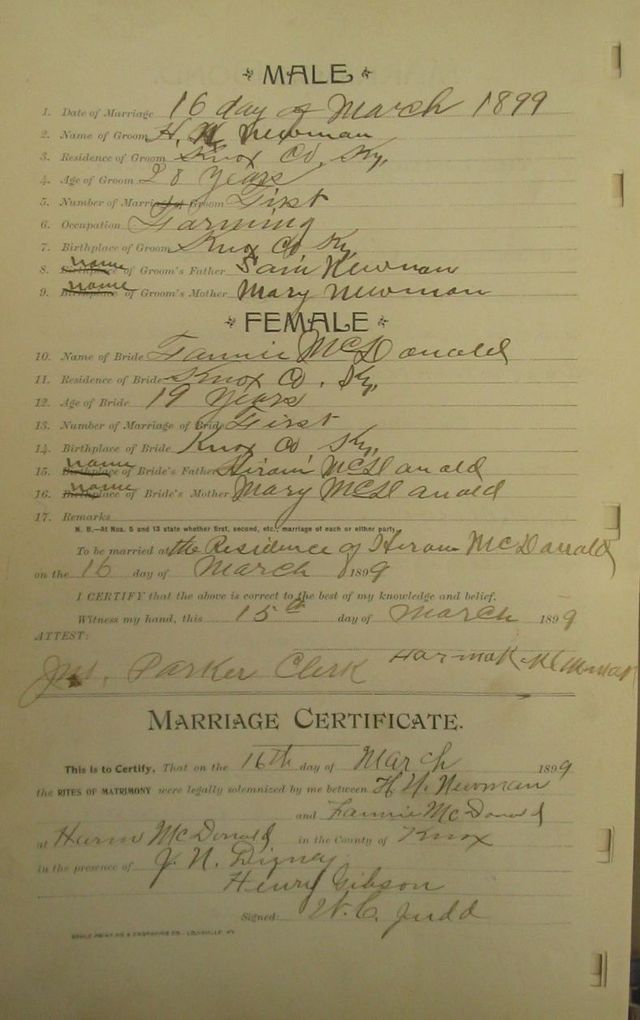 MALE
1. Date of Marriage 16 day of March 1899
2. Name of Groom H. N. Newman
3. Residence of Groom Knox Co, Ky,
4. Age of Groom 28 years
5. Number of Marriage of Groom First
6. Occupation Farming
7. Birthplace of Groom Knox Co Ky
8. Birthplace name of Groom's Father Sam Newman
9. Birthplace name of Groom's Mother Mary Newman
FEMALE
10. Name of Bride Fannie McDonald
11. Residence of Bride Knox Co, Ky,
12. Age of Bride 19 years
13. Number of Marriage of Bride First
14. Birthplace of Bride Knox Co Ky,
15. Birthplace name of Bride's Father Hiram McDanald
16. Birthplace name of Bride's Mother Mary McDanald
17. Remarks
N. B.—At Nos. 5 and 13 state whether first, second, etc., marriage of each or either party.
To be married at the Residence of Hiram McDonald
on the 16 day of March 1899
I CERTIFY that the above is correct to the best of my knowledge and belief.
Witness my hand, this 15th day of March 1899
ATTEST:
Parker Clerk
MARRIAGE CERTIFICATE.
This is to Certify, That on the 16th day of March 1899
the RITES OF MATRIMONY were legally solemnized by me between H. N. Newman
and Fannie McDonald
at Harm McDonald in the County of Knox
in the presence of J. N.
Henry Gibson
Signed: W. C. Judd